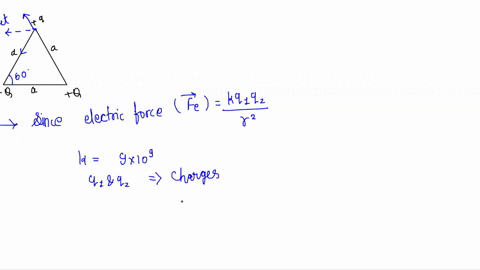 +q
a
a
60°
a
+Q
→ Since electric force (F⃗e) = kq1q2/r²
k = 9×10⁹
q1 & q2 ⇒ charges